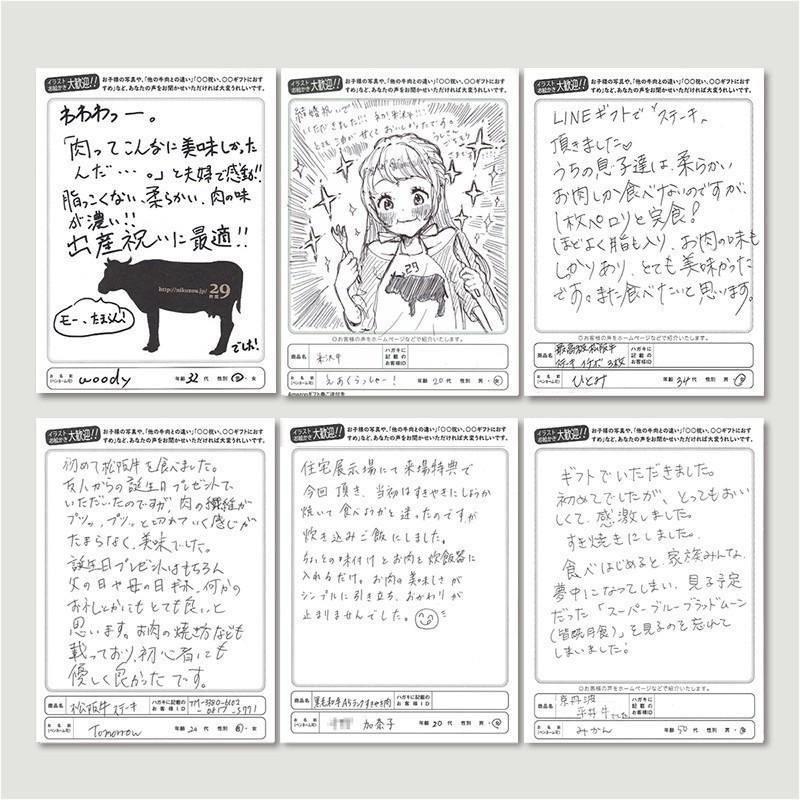 イラスト お絵かき 大歓迎!!
お子様の写真や、「他の牛肉との違い」「〇〇祝い、〇〇ギフトにおすすめ」など、あなたの声をお聞かせいただければ大変うれしいです。
わわわっー。
「肉ってこんなに美味しかった
んだ・・・。」と夫婦で感動!!
脂っこくない、柔らかい、肉の味
が濃い!!
出産祝いに最適!!
http://nikuzou.jp/ 29
モー、たまらん!
でしお!
お名前(ペンネーム可)
woody
年齢 32 代 性別 男・女
イラスト お絵かき 大歓迎!!
お子様の写真や、「他の牛肉との違い」「〇〇祝い、〇〇ギフトにおすすめ」など、あなたの声をお聞かせいただければ大変うれしいです。
結婚祝いで
いただきました!!!
とても油が甘くておいしかったです。
29
◎お客様の声をホームページなどで紹介いたします。
商品名 米沢牛
ハガキに記載のお客様ID
お名前(ペンネーム可)
えあくらっしゃー!
年齢 20 代 性別 男・女
イラスト お絵かき 大歓迎!!
お子様の写真や、「他の牛肉との違い」「〇〇祝い、〇〇ギフトにおすすめ」など、あなたの声をお聞かせいただければ大変うれしいです。
LINEギフトで"ステーキ"
頂きました♡
うちの息子達は、柔らかい
お肉しか食べないのですが、
1枚ペロリと完食!
ほどよく脂も入り、お肉の味も
しっかりあり、とても美味かった
です。また食べたいと思います。
◎お客様の声をホームページなどで紹介いたします。
商品名 最高級松阪牛
ステーキ イチボ 3枚
ハガキに記載のお客様ID
お名前(ペンネーム可)
ひとみ
年齢 34 代 性別 男・女
イラスト お絵かき 大歓迎!!
お子様の写真や、「他の牛肉との違い」「〇〇祝い、〇〇ギフトにおすすめ」など、あなたの声をお聞かせいただければ大変うれしいです。
初めて松阪牛を食べました。
友人からの誕生日プレゼントで
いただいたのですが、肉の繊維が
プツッ、プツッと切れていく感じが
たまらなく、美味でした。
誕生日プレゼントはもちろん
父の日や母の日ギフト、何かの
お礼とかにもとても良いと
思います。お肉の焼き方なども
載っており、初心者にも
優しく良かったです。
商品名 松阪牛ステーキ
ハガキに記載のお客様ID
お名前(ペンネーム可)
Tomorrow
年齢 20 代 性別 男・女
イラスト お絵かき 大歓迎!!
お子様の写真や、「他の牛肉との違い」「〇〇祝い、〇〇ギフトにおすすめ」など、あなたの声をお聞かせいただければ大変うれしいです。
住宅展示場にて来場特典で
今回頂き、当初はすきやきにしようか
焼いて食べようかと迷ったのですが
炊き込みご飯にしました。
ちょっとの味付けとお肉を炊飯器に
入れるだけ。お肉の美味しさが
シンプルに引き立ち、おかわりが
止まりませんでした。
商品名 黒毛和牛A5ランクすきやき肉
ハガキに記載のお客様ID
お名前(ペンネーム可)
加奈子
年齢 20 代 性別 男・女
イラスト お絵かき 大歓迎!!
お子様の写真や、「他の牛肉との違い」「〇〇祝い、〇〇ギフトにおすすめ」など、あなたの声をお聞かせいただければ大変うれしいです。
ギフトでいただきました。
初めてでしたが、とってもおいし
くて、感激しました。
すき焼きにしました。
食べはじめると、家族みんな、
夢中になってしまい、見る予定
だった「スーパーブルーブラッドムーン
(皆既月食)」を見るのを忘れて
しまいました!
◎お客様の声をホームページなどで紹介いたします。
商品名 京丹波
平井牛でした
ハガキに記載のお客様ID
お名前(ペンネーム可)
みかん
年齢 50 代 性別 男・女